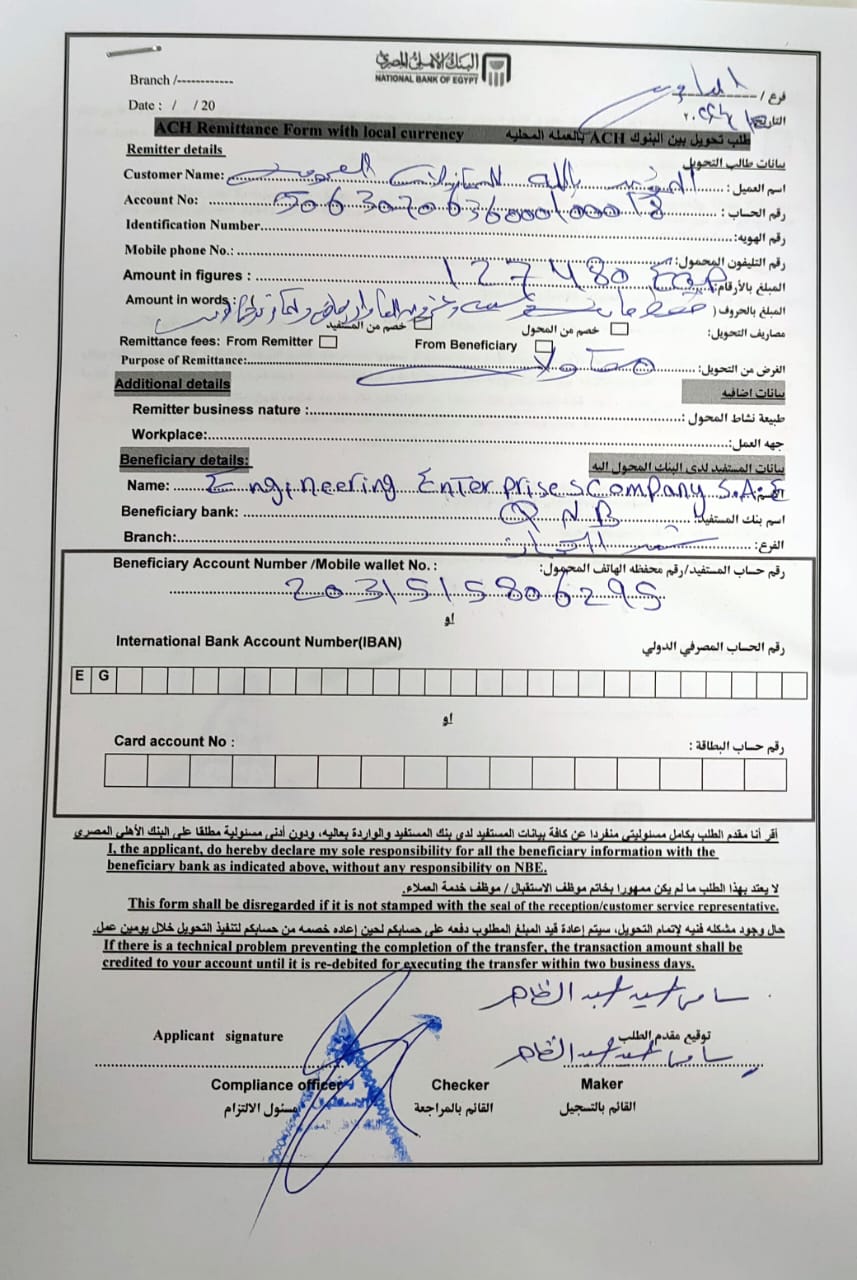 البنك الأهلي المصري
NATIONAL BANK OF EGYPT
Branch /-----------
فرع /
Date : / /20
التاريخ
ACH Remittance Form with local currency طلب تحويل بين البنوك ACH بالعمله المحليه
Remitter details بيانات طالب التحويل
Customer Name: بالله للمقاولات اسم العميل :
Account No: رقم الحساب :
Identification Number رقم الهويه:
Mobile phone No.: رقم التليفون المحمول:
Amount in figures : 127480 EGP المبلغ بالأرقام:
Amount in words : المبلغ بالحروف (
مصاريف التحويل: خصم من المحول خصم من المستفيد
Remittance fees: From Remitter From Beneficiary
Purpose of Remittance: مقاولات الغرض من التحويل:
Additional details بيانات اضافيه
Remitter business nature : طبيعة نشاط المحول :
Workplace: جهه العمل:
Beneficiary details: بيانات المستفيد لدى البنك المحول اليه
Name: Engineering Enterprises Company S.A.E
Beneficiary bank: QNB اسم بنك المستفيد:
Branch: الفرع:
Beneficiary Account Number /Mobile wallet No. : رقم حساب المستفيد/رقم محفظه الهاتف المحمول:
2031515806295
او
International Bank Account Number(IBAN) رقم الحساب المصرفي الدولي
E G
او
Card account No : رقم حساب البطاقة :
أقر أنا مقدم الطلب بكامل مسئوليتي منفردا عن كافة بيانات المستفيد لدي بنك المستفيد والواردة بعاليه، ودون أدنى مسئولية مطلقا على البنك الأهلي المصري
I, the applicant, do hereby declare my sole responsibility for all the beneficiary information with the
beneficiary bank as indicated above, without any responsibility on NBE.
لا يعتد بهذا الطلب ما لم يكن ممهورا بخاتم موظف الاستقبال / موظف خدمة العملاء.
This form shall be disregarded if it is not stamped with the seal of the reception/customer service representative.
حال وجود مشكله فنيه لإتمام التحويل، سيتم إعادة قيد المبلغ المطلوب دفعه على حسابكم لحين إعاده خصمه من حسابكم لتنفيذ التحويل خلال يومين عمل.
If there is a technical problem preventing the completion of the transfer, the transaction amount shall be
credited to your account until it is re-debited for executing the transfer within two business days.
سامى سيد عبد الظاهر
Applicant signature توقيع مقدم الطلب
سامى سيد عبد الظاهر
Compliance officer Checker Maker
مسئول الالتزام القائم بالمراجعة القائم بالتسجيل